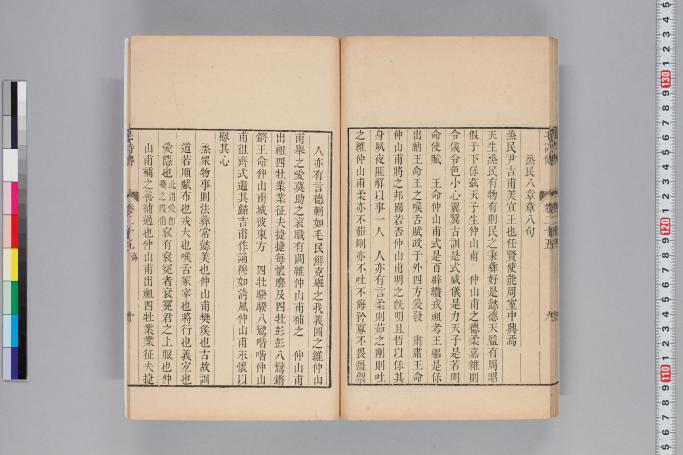 烝民八章章八句
烝民尹吉甫美宣王也任賢使能周室中興焉
天生烝民有物有則民之秉彝好是懿德天監有周昭
假于下保茲天子生仲山甫　仲山甫之德柔嘉維則
令儀令色小心翼翼古訓是式威儀是力天子是若明
命使賦　王命仲山甫式是百辟纘戎祖考王躬是保
出納王命王之喉舌賦政于外四方爰發　肅肅王命
仲山甫將之邦國若否仲山甫明之旣明且哲以保其
身夙夜匪解以事一人　人亦有言柔則茹之剛則吐
之維仲山甫柔亦不茹剛亦不吐不侮矜寡不畏彊禦
人亦有言德輶如毛民鮮克舉之我義圖之維仲山
甫舉之愛莫助之袞職有闕維仲山甫補之　仲山甫
出祖四牡業業征夫捷捷每懷靡及四牡彭彭八鸞鏘
鏘王命仲山甫城彼東方　四牡騤騤八鸞喈喈仲山
甫徂齊式遄其歸吉甫作誦穆如清風仲山甫永懷以
慰其心
烝衆物事則法彝常懿美也仲山甫樊矦也古故訓
道若順賦布也戎大也喉舌冢宰也將行也義宐也
愛隱也
袞有袞冕者袞冕君之上服也仲
山甫補之善補過也仲山甫出祖四牡業業征夫捷
130
120
110